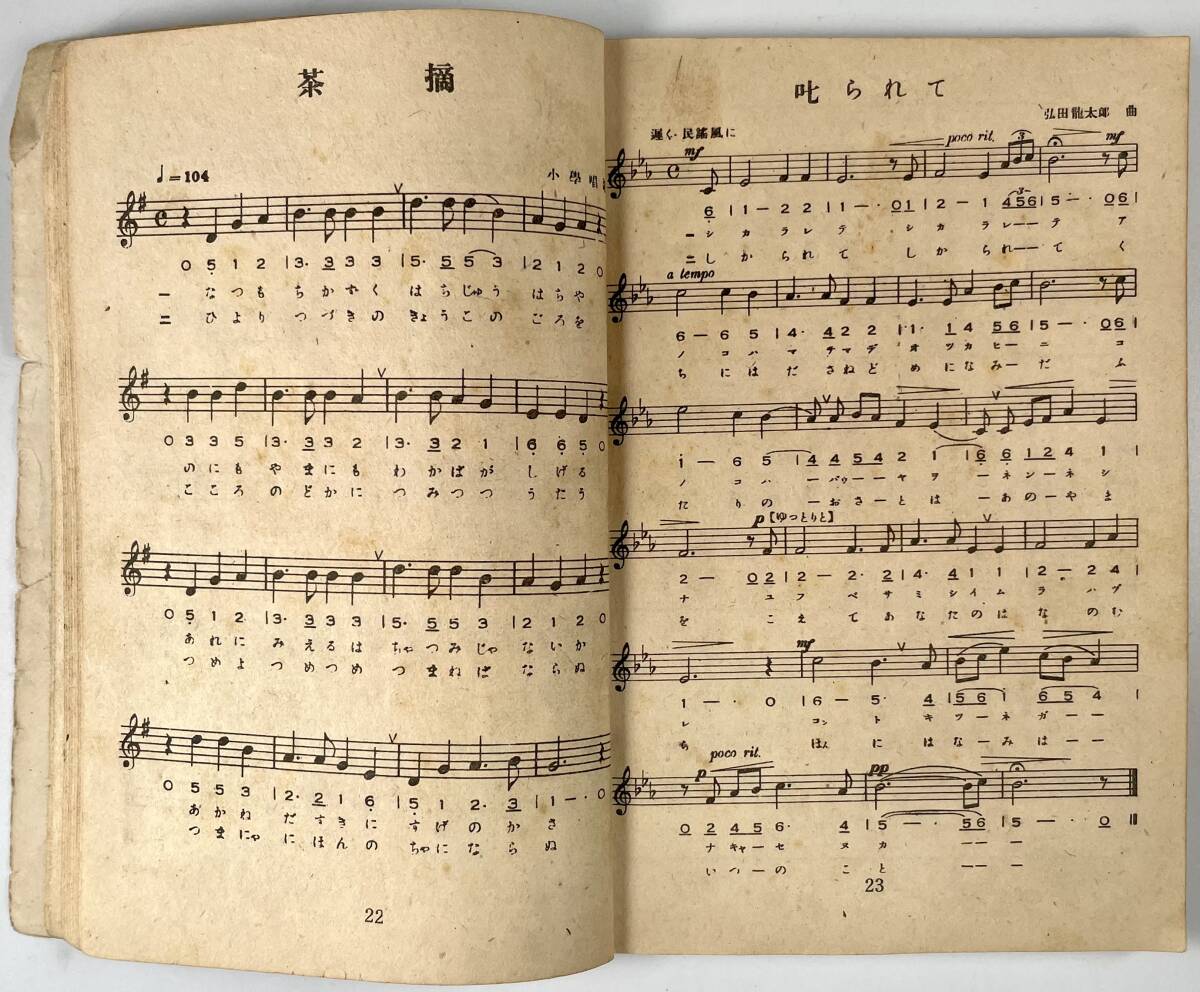 茶摘
♩=104
小學唱
0 5 1 2 | 3· 3 3 3 | 5· 5 5 3 | 2 1 2 0
一 なつもちかずくはちじゅうはちや
二 ひよりつづきのきょうこのごろを
0 3 3 5 | 3· 3 3 2 | 3· 3 2 1 | 6 6 5 0
のにもやまにもわかばがしげる
こころのどかにつみつつうたう
0 5 1 2 | 3· 3 3 3 | 5· 5 5 3 | 2 1 2 0
あれにみえるはちゃつみじゃないか
つめよつめつめつまねばならぬ
0 5 5 3 | 2· 2 1 6 | 5 1 2· 3 | 1 — · 0
あかねだすきにすげのかさ
つまにゃにほんのちゃにならぬ
22
叱られて
弘田龍太郎 曲
遅く・民謠風に
mf
poco rit.
3
mf
6 | 1 — 2 2 | 1 — · 0 1 | 2 — 1 4 5 6 | 5 — · 0 6 |
一シカラレテ シカラレ——テ ア
二しかられて しかられ——て く
a tempo
6 — 6 5 | 4· 4 2 2 | 1· 1 4 5 6 | 5 — · 0 6 |
ノコハマチマデオツカヒーニ コ
ちにはださねどめになみーだ ム
1 — 6 5 | 4 4 5 4 2 1 | 6 6 1 2 4 1 |
ノコハーバウーーヤヲーネンーネシ
たりのーおさーとはーあのーやま
p [ゆつとりと]
2 — 0 2 | 2 — 2· 2 | 4· 4 1 1 | 2 — 2 4 |
ナ ユフベサミシイムラハヅ
を こえてあなたのはなのむ
mf
1 — · 0 | 6 — 5· 4 | 5 6 1 6 5 4 |
レ コントキツーネガーー
ち ほんにはなーみはーー
poco rit.
p
pp
0 2 4 5 6· 4 | 5 — · 5 6 | 5 — · 0
ナキャーセヌカ———
いつーのこと———
23